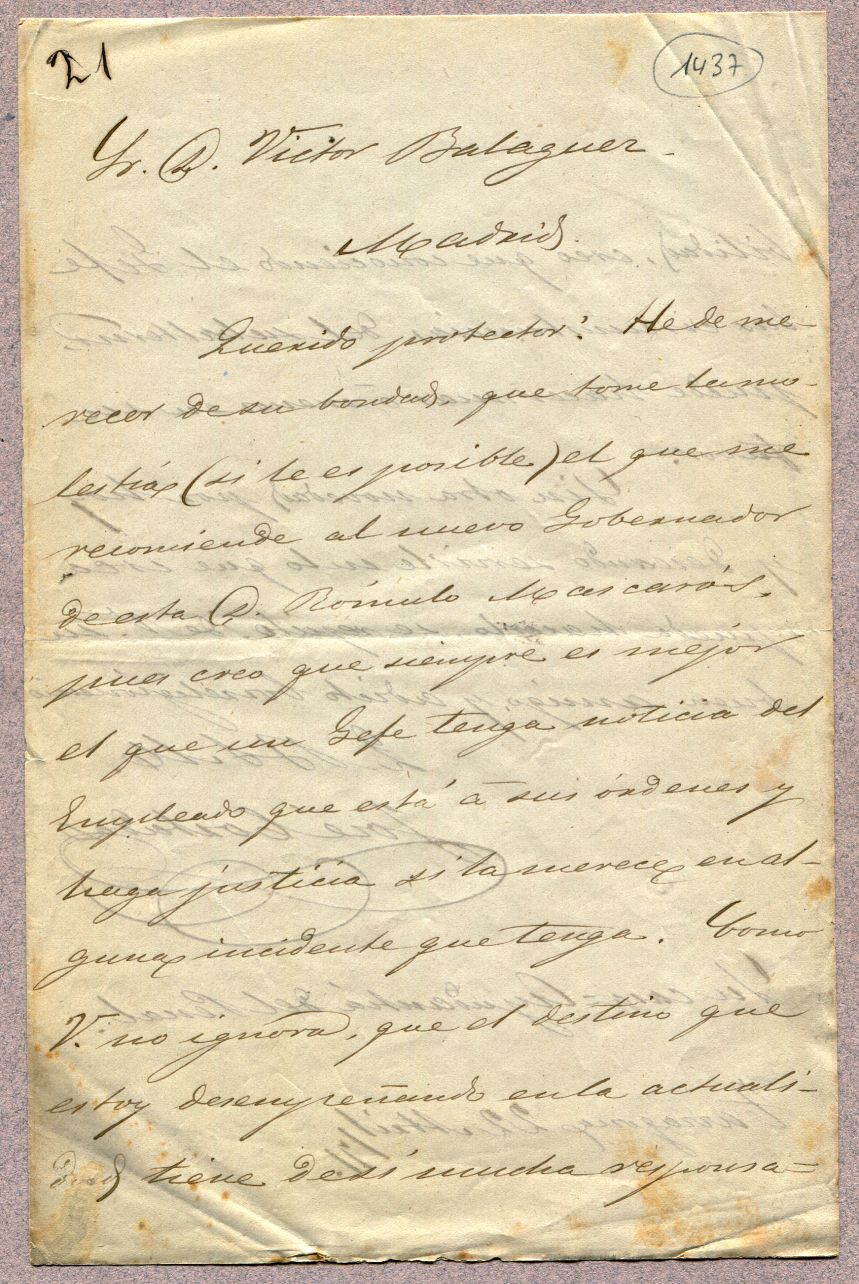 21
1437
Sr. D. Victor Balaguer
Madrid.
Querido protector: He de me-
recer de su bondad, que tome la mo-
lestia (si le es posible) el que me
recomiende al nuevo Gobernador
de esta D. Rómulo Mascarós,
pues creo que siempre es mejor
el que un Gefe tenga noticia del
Empleado que está à sus órdenes y
haga justicia si la merece en al-
guna incidente que tenga. Como
V. no ignora, que el destino que
estoy desempeñando en la actuali-
dad tiene de sí mucha responsa=